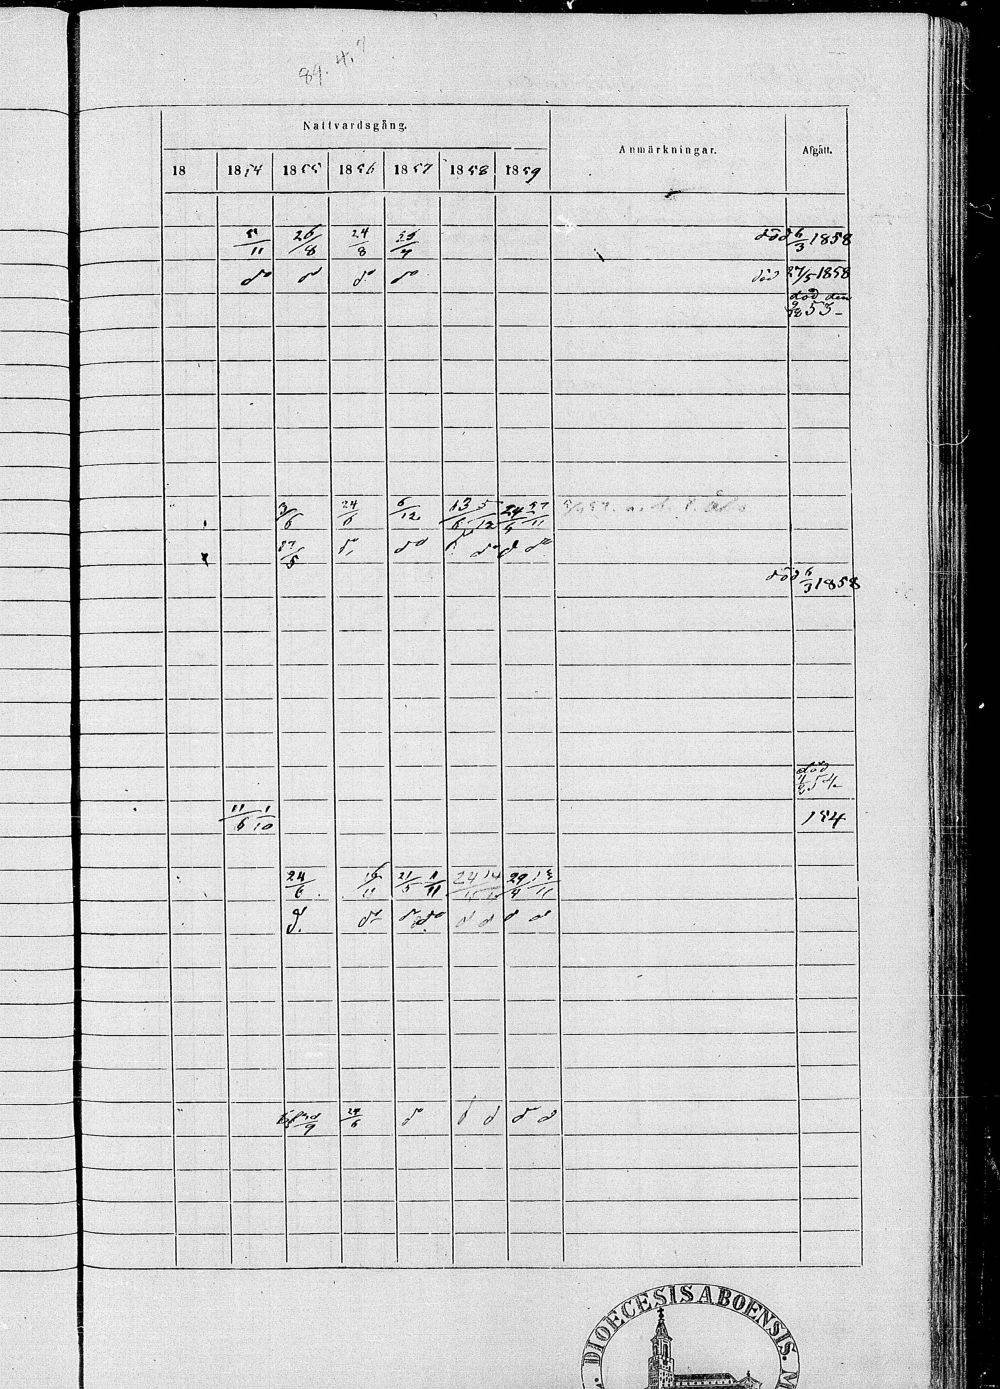 84. 4.
Nattvardsgång.
Anmärkningar.
Afgått.
18 1854 1855 1856 1857 1858 1859
5/11 26/8 24/8 död 6/3 1858
do d do do död 27/5 1858
död den
53
3/6 24/6 6/12 13/6 5/12 24/4 27/11
27/5 do do do d do
död 6/3 1858
död
54
11/6 1/10 154
24/6 16/11 21/5 1/11 24 14 29/4 13/11
d. do do do d d d d
9 24/6 d d d d d
DIOECESIS ABOENSIS. M